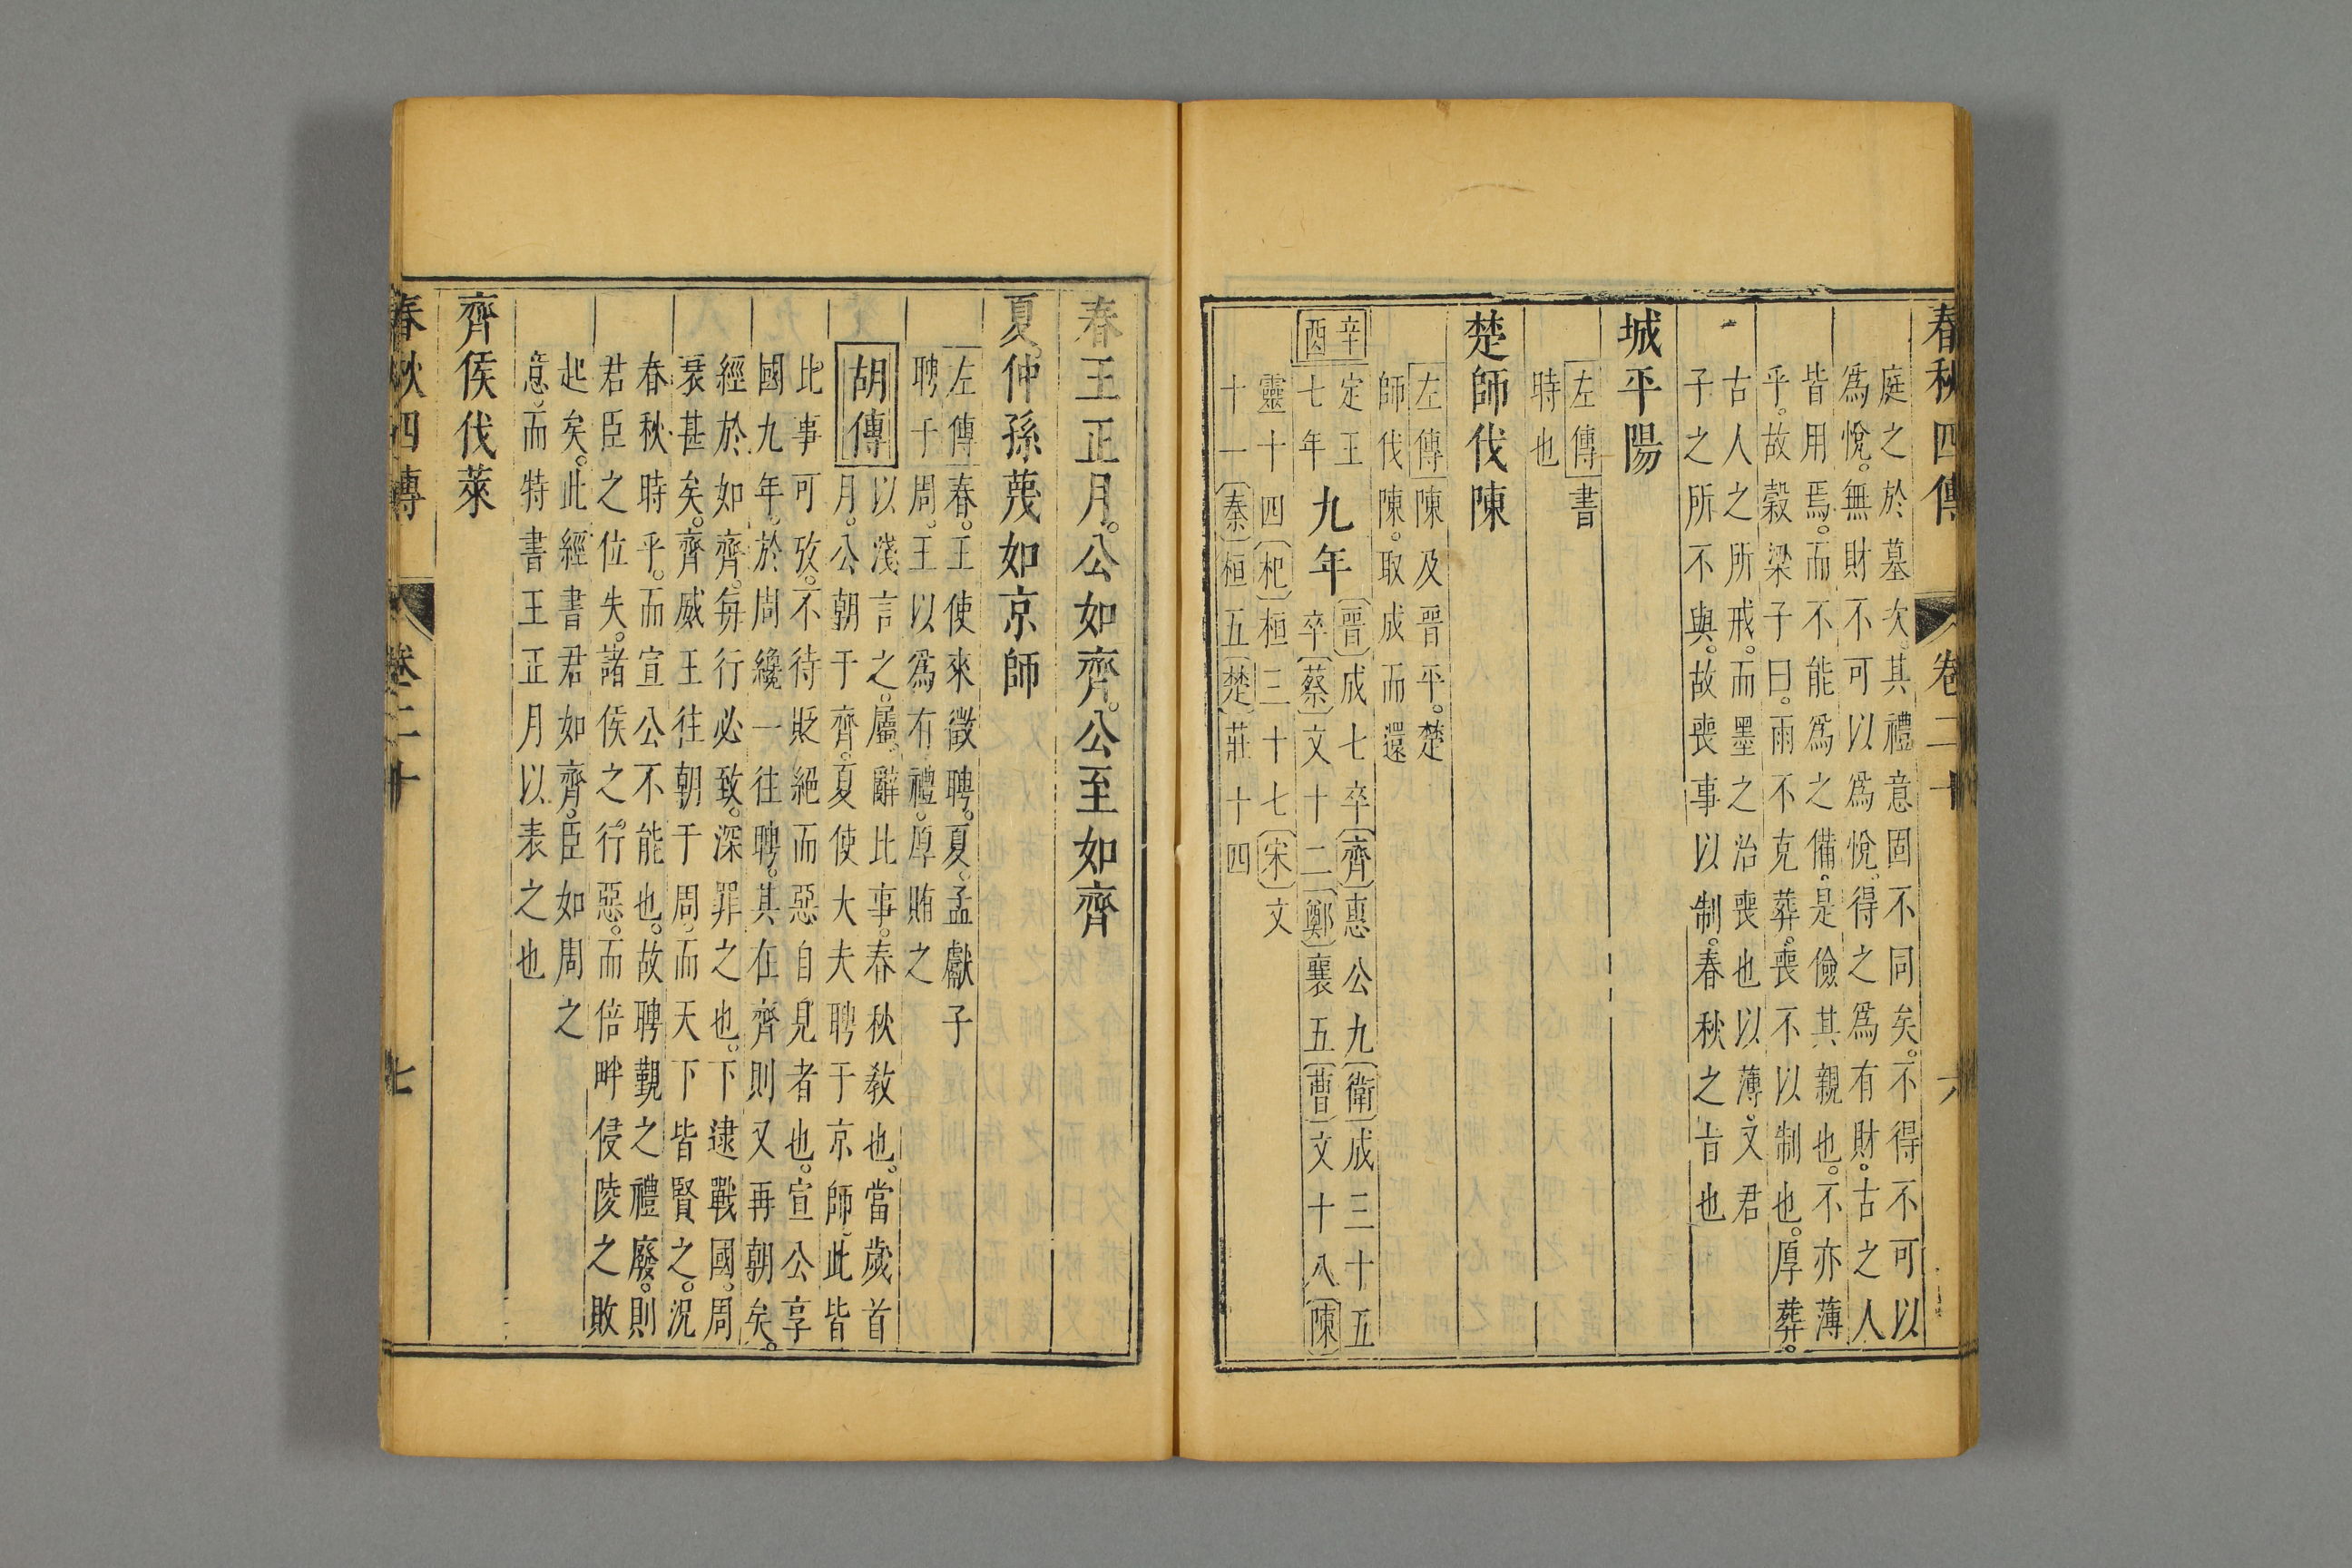 春秋四傳 卷二十 六
庭之於墓次其禮意固不同矣。不得不可以
爲悅。無財不可以爲悅。得之爲有財。古之人
皆用焉。而不能爲之備。是儉其親也。不亦薄
乎。故穀梁子曰。雨不克葬。喪不以制也。厚葬。
古人之所戒。而墨之治喪也。以薄。文君
子之所不與。故喪事以制。春秋之旨也
城平陽
左傳書
時也
楚師伐陳
左傳陳及晉平。楚
師伐陳。取成而還
辛酉
定王七年
九年
晉成七卒齊惠公九衛成三十五
卒蔡文十二鄭襄五曹文十八陳
靈十四杞桓三十七宋文
十一秦桓五楚莊十四
春王正月。公如齊。公至如齊
夏。仲孫蔑如京師
左傳春。王使來徵聘。夏。孟獻子
聘于周。王以爲有禮。厚賄之
胡傳
以淺言之。屬辭比事。春秋教也。當歲首
月。公朝于齊。夏使大夫聘于京師。此皆
比事可攷。不待貶絕而惡自見者也。宣公享
國九年。於周纔一往聘。其在齊則又再朝矣。
經於如齊。每行必致。深罪之也。下逮戰國。周
衰甚矣。齊威王往朝于周。而天下皆賢之。況
春秋時乎。而宣公不能也。故聘覲之禮廢。則
君臣之位失。諸侯之行惡。而倍畔侵陵之敗
起矣。此經書君如齊。臣如周之
意。而特書王正月以表之也
齊侯伐萊
春秋四傳 卷二十 七